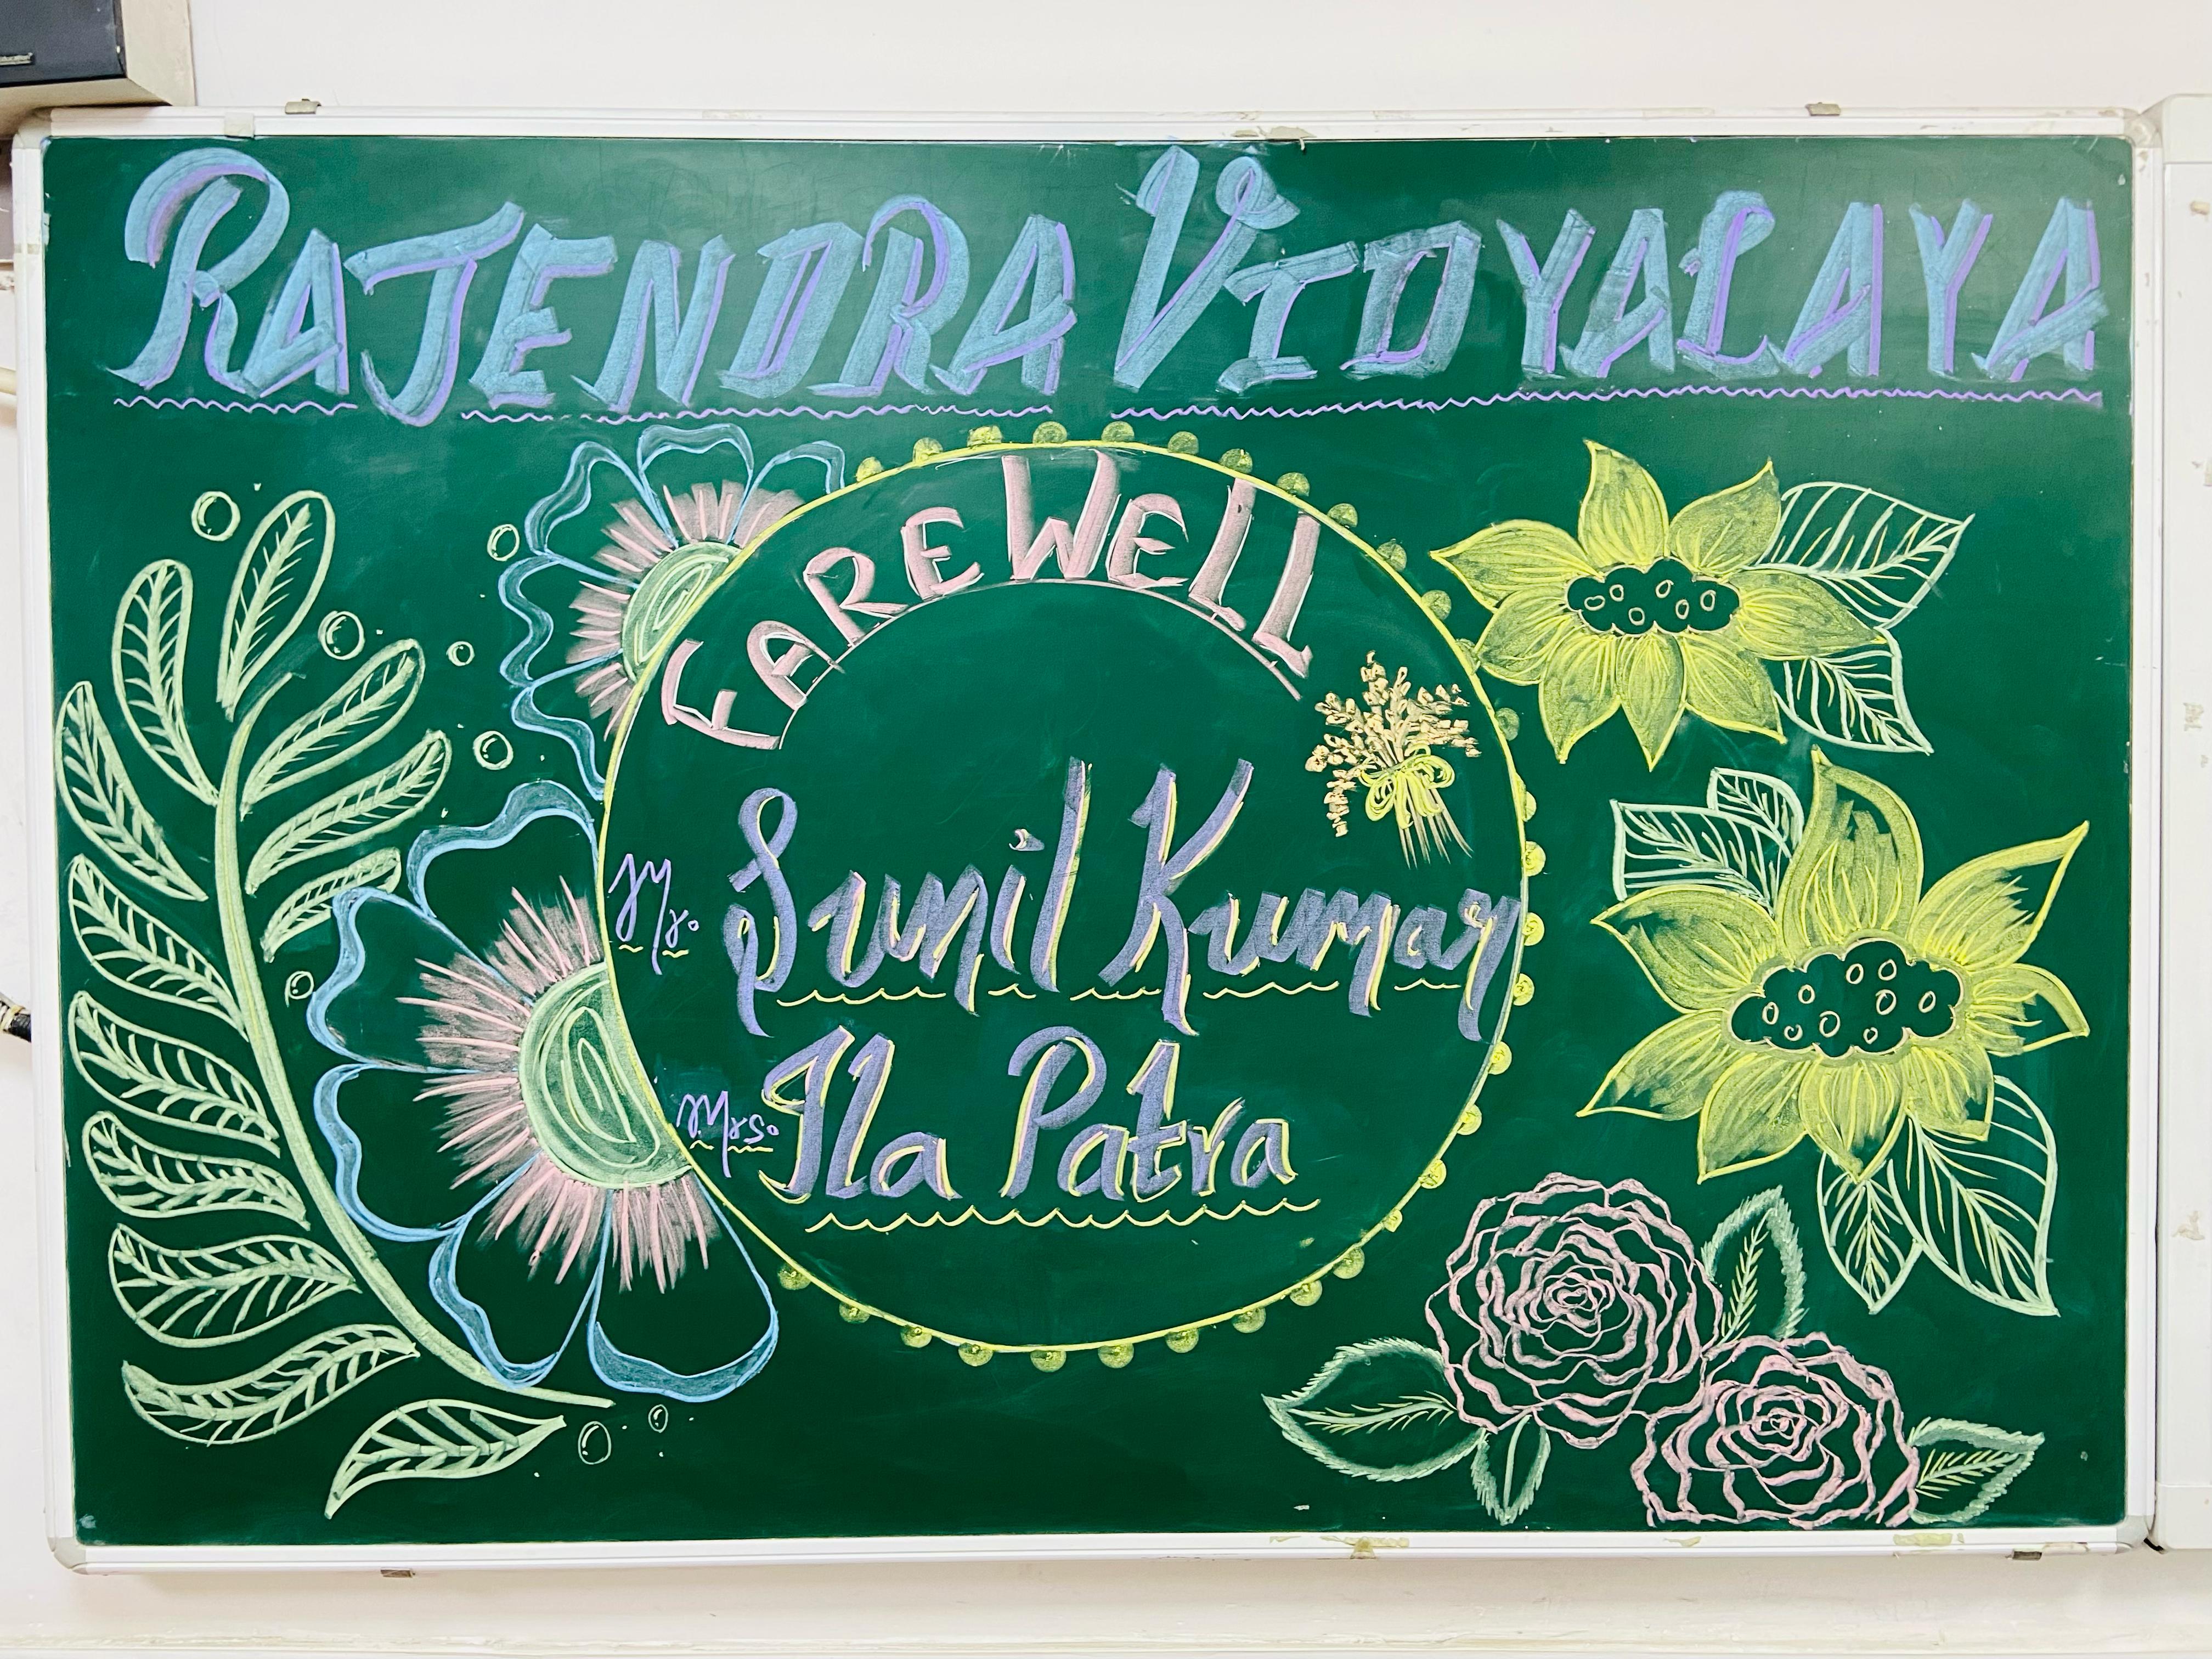 RAJENDRA VIDYALAYA
FAREWELL
Mr. Sunil Kumar
Mrs. Ila Patra